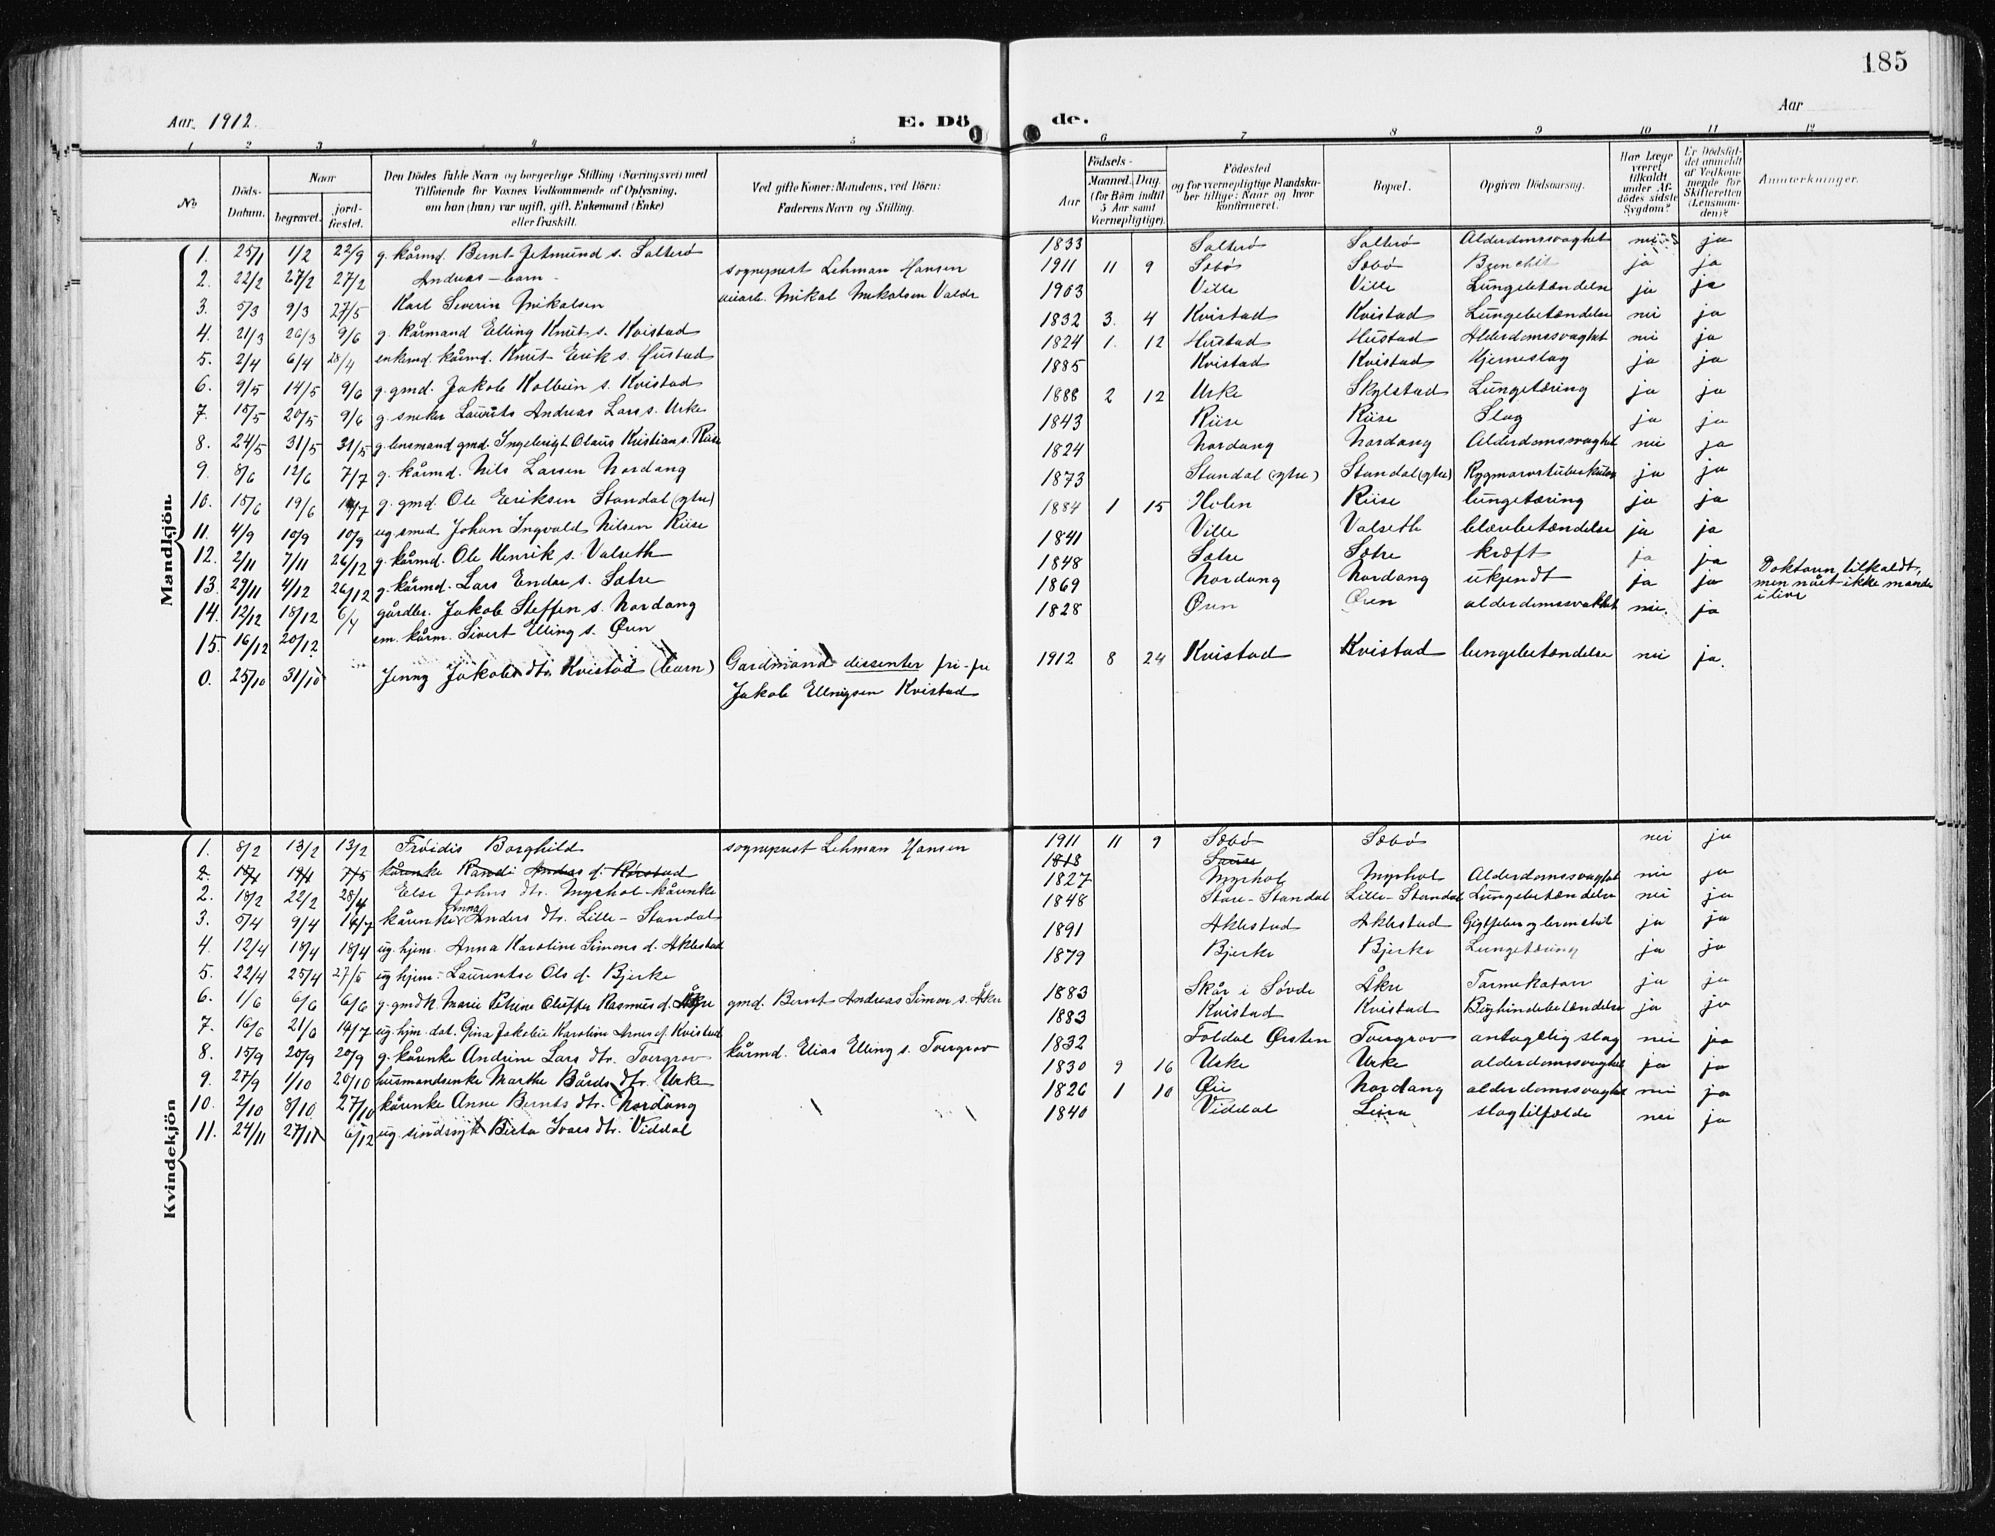 185
Aar 1912.
E. Dö de.
Aar
1 2 3 4 5 6 7 8 9 10 11 12
No
Döds-Datum.
Naar
begravet.
jord-fæstet.
Den Dödes fulde Navn og borgerlige Stilling (Næringsvei) med
Tilföiende för Voxnes Vedkommende af Oplysning,
om han (hun) var ugift, gift, Enkemand (Enke)
eller fraskilt.
Ved gifte Koner: Mandens, ved Börn:
Faderens Navn og Stilling.
Födsels-
Aar
Maaned. Dag.
(for Börn indtil
5 Aar samt
Værnepligtige).
Födested
og for værnepligtige Mandska-
ber tillige: Naar og hvor
konfirmeret.
Bopæl.
Opgiven Dödsaarsag.
Har Læge
været
tilkaldt
under Af-
dödes sidste
Sygdom?
Er Dödsfal-
det anmeldt
af Vedkom-
mende for
Skifteretten
(Lensman-
den)?
Anmerkninger.
Mandkjön.
1. 25/1 1/2 22/9 g. kårmd. Bernt Jetmund s. Sæterö 1833 Sæterö Sæterö Alderdomssvaghet nei ja
2. 22/2 27/2 27/2 Andreas - barn - sogneprest Lehman Hansen 1911 11 9 Sæbö Sæbö ja ja
3. 5/3 9/3 27/5 Karl Severin Mikalsen Mikal Mikalsen 1903 Ville Ville Lungebetændelse ja ja
4. 21/3 26/3 9/6 g. kårmand Elling Knut s. Kvistad 1832 3. 4 Kvistad Kvistad Lungebetændelse nei ja
5. 2/4 6/4 28/4 enkemd. kårmd. Knut Erik s. Hustad 1824 1. 12 Hustad Hustad Alderdomssvaghet nei ja
6. 9/5 14/5 9/6 g. gmd. Jakob Kolbein s. Kvistad 1885 Kvistad Kvistad Hjerneslag ja ja
7. 15/5 20/5 9/6 g. sneker Laurits Andreas Lars s. Urke 1888 2 12 Urke Skylstad Lungetæring ja ja
8. 24/5 31/5 31/5 g. lensmand gmd. Ingebrigt Olaus Kristian s. Riise 1843 Riise Riise Slag ja ja
9. 8/6 12/6 7/7 g. kårmd. Nils Larsen Nordang 1824 Nordang Nordang Alderdomssvaghet nei ja
10. 15/6 19/6 14/7 g. gmd. Ole Eriksen Standal (ytre) 1873 Standal (ytre) Standal (ytre) Rygmarvstuberkulose ja ja
11. 4/9 10/9 10/9 ug. smed Johan Ingvald Nilsen Riise 1884 1 15 Holen Riise lungetæring ja ja
12. 2/11 7/11 26/12 g. kårmd. Ole Henrik s. Valseth 1841 Ville Valseth blærebetændelse ja ja
13. 29/11 4/12 26/12 g. kårmd. Lars Endre s. Sætre 1848 Sætre Sætre kræft ja ja
14. 12/12 18/12 6/4 gårdbr. Jakob Steffen s. Nordang 1869 Nordang Nordang ukjendt ja ja Doktoren tilkaldt, men nået ikke manden i live
15. 16/12 20/12 em. kårm. Sivert Elling s. Øren 1828 Øren Øren alderdomssvakhet nei. ja
0. 25/10 31/10 Jenny Jakobs dtr. Kvistad (barn) Gardmand dissenter 1912 8 24 Kvistad Kvistad lungebetændelse nei ja.
Jakob Ellingsen Kvistad
Kvindekjön
1. 8/2 13/2 13/2 Frøidis Borghild sogneprest Lehman Hansen 1911 11 9 Sæbö Sæbö nei ja
2. kårenke Randi Andreas d. 1818
2. 18/2 22/2 28/4 Else Johns dtr. Myrhol kårenke 1827 Myrhol Myrhol Alderdomssvaghet nei ja
3. 5/4 9/4 14/7 kårenke Anna Anders dtr. Lille-Standal 1848 Store-Standal Lille-Standal Lungebetændelse nei ja
4. 12/4 18/4 18/4 ug. hjm. Anna Karoline Simons d. Aklestad 1891 Aklestad Aklestad ja ja
5. 22/4 25/4 27/5 ug. hjm. Laurentse Ols d. Bjerke 1879 Bjerke Bjerke Lungetæring ja ja
6. 1/6 6/6 6/6 g. gmdk. Marie Petrine Oluffe Rasmus d. Åkre gmd. Bernt Andreas Simon s. Åkre 1883 Skår i Søvde Åkre Tarmekatarr ja ja
7. 16/6 21/6 14/7 ug. hjm. dat. Gina Jakobie Karoline Arnes d. Kvistad 1883 Kvistad Kvistad Bughindebetændelse ja ja
8. 15/9 20/9 20/9 g. kårenke Andrine Lars dtr. Tvergrov kårmd. Elias Elling s. Tvergrov 1832 Foldal Ørsten Tvergrov antagelig slag nei ja
9. 27/9 1/10 20/10 husmandsenke Marthe Bårds dtr. Urke 1830 9 16 Urke Urke alderdomssvaghet ja ja
10. 2/10 8/10 27/10 kårenke Anne Bernts dtr. Nordang 1826 1 10 Øie Nordang alderdomssvaghet nei ja
11. 24/11 27/11 6/12 ug. sindssyk Berta Ivars dtr. Viddal 1840 Viddal Leira slagtilfælde nei ja